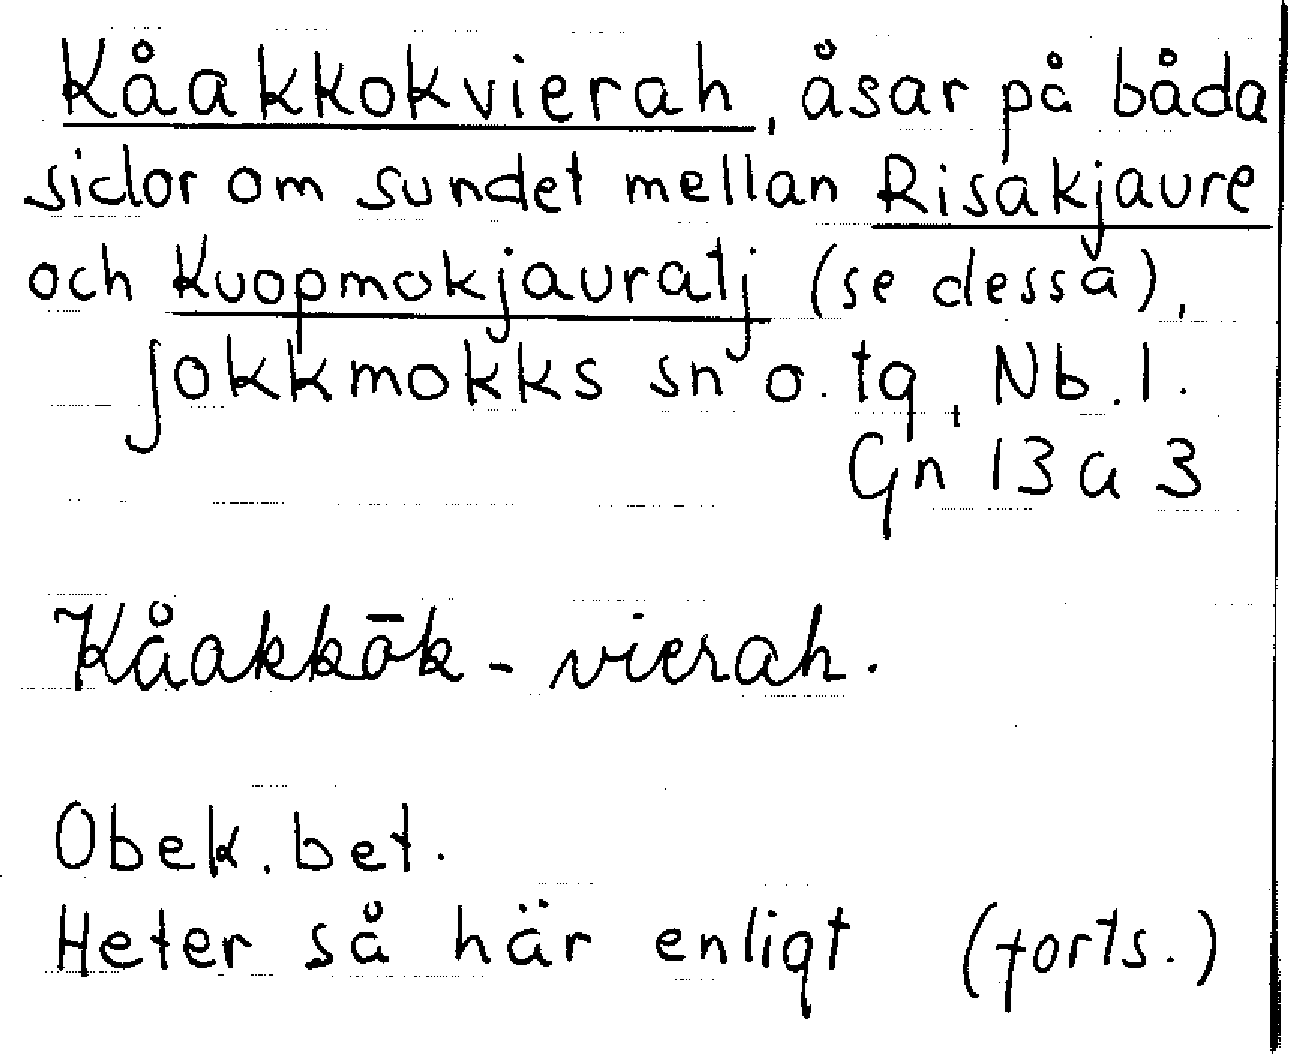 Kåakkokvierah, åsar på båda
sidor om sundet mellan Risakjaure
och Kuopmokjauratj (se dessa),
Jokkmokks sn o. tg, Nb. l.
Gn 13 a 3
Kåakkōk - vierah.
Obek. bet.
Heter så här enligt (forts.)